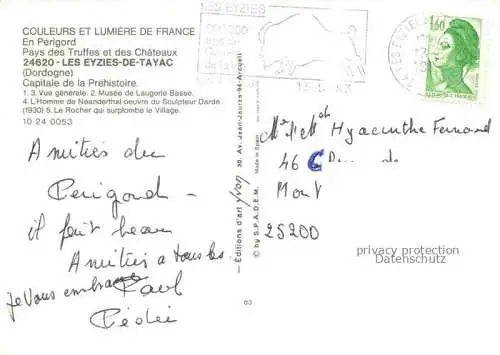 COULEURS ET LUMIÈRE DE FRANCE
En Périgord
Pays des Truffes et des Châteaux
24620 - LES EYZIES-DE-TAYAC
(Dordogne)
Capitale de la Préhistoire.
1. 3. Vue générale. 2. Musée de Laugerie Basse.
4. L'Homme de Néanderthal oeuvre du Sculpteur Dardé.
(1930) 5. Le Rocher qui surplombe le Village.
10 24 0053
LES EYZIES
1,60
Amitiés du
Périgord
il fait beau
Amitiés a tous les
Je vous embrasse Paul
— Éditions d'art yvon 30, Av. Jean-Jaurès-94-Arcueil
© by S.P.A.D.E.M. Made in Spain
83
Mr et Mme Hyacinthe Fernand
46 C
Mont
25200
privacy protection
Datenschutz